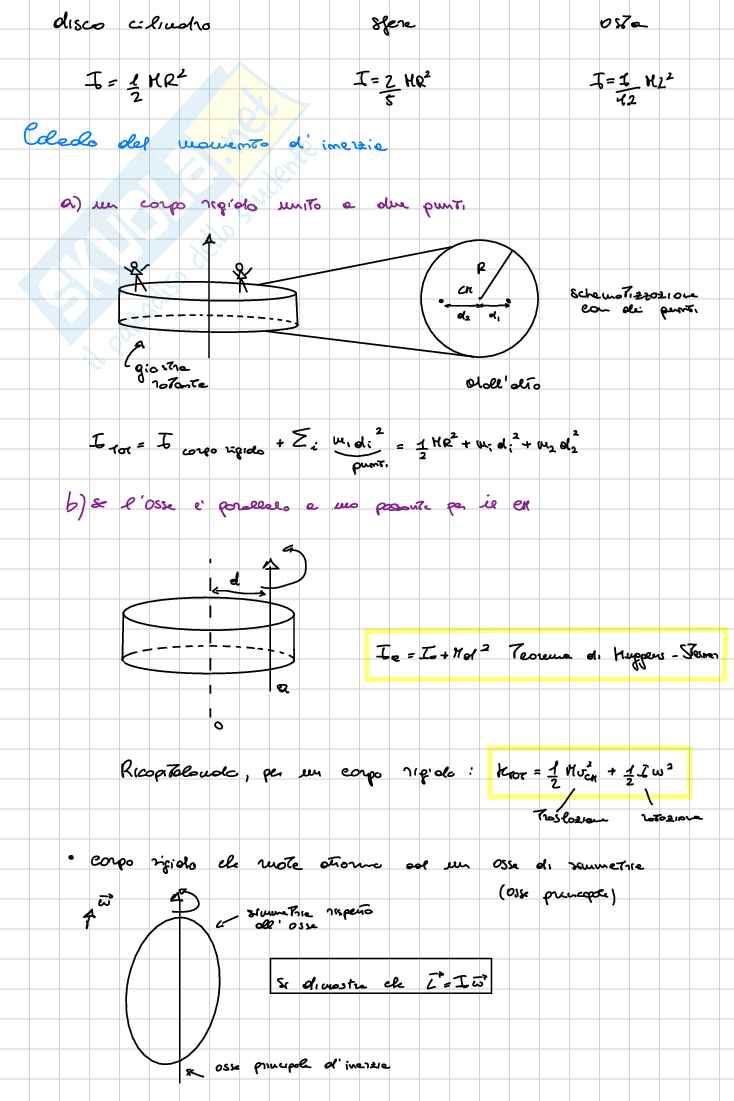 disco cilindro sfera asta
I₀ = 1/2 MR² I = 2/5 MR² I₀ = 1/12 ML²
Calcolo del momento d'inerzia
a) un corpo rigido unito a due punti
R
CM
d₂ d₁
schematizzazione
con dei punti
giostra
rotante
dall'alto
I TOT = I₀ corpo rigido + Σi mi di² = 1/2 MR² + mi di² + m₂ d₂²
punti
b) se l'asse è parallelo a uno passante per il CM
d
Ia = I₀ + Md² Teorema di Huygens-Steiner
a
O
Ricapitolando, per un corpo rigido : KTOT = 1/2 Mv²CM + 1/2 I ω²
Traslazione rotazione
• corpo rigido che ruota attorno ad un asse di simmetria
(asse principale)
ω⃗
simmetria rispetto
all'asse
Si dimostra che L⃗ = I ω⃗
asse principale d'inerzia
SKUOLA.net
il paradiso dello studente